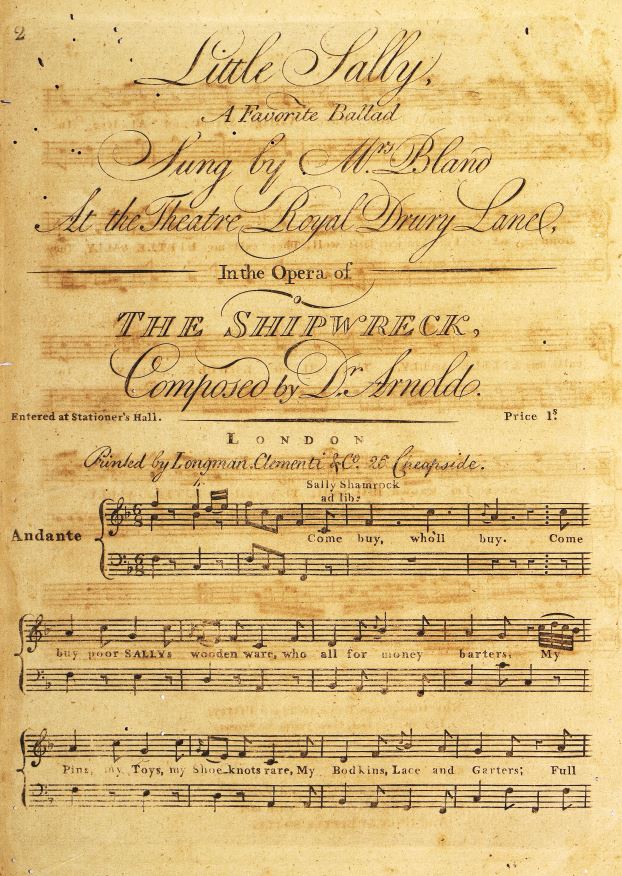 2
Little Sally,
A Favorite Ballad
Sung by Mrs Bland
At the Theatre Royal Drury Lane,
In the Opera of
THE SHIPWRECK,
Composed by Dr. Arnold.
Entered at Stationer's Hall. Price 1s.
LONDON
Printed by Longman, Clementi & Co. 26 Cheapside.
Sally Shamrock
ad lib:
Andante
Come buy, who'll buy. Come
buy poor SALLYs wooden ware, who all for money barters. My
Pins, my Toys, my Shoe knots rare, My Bodkins, Lace and Garters; Full